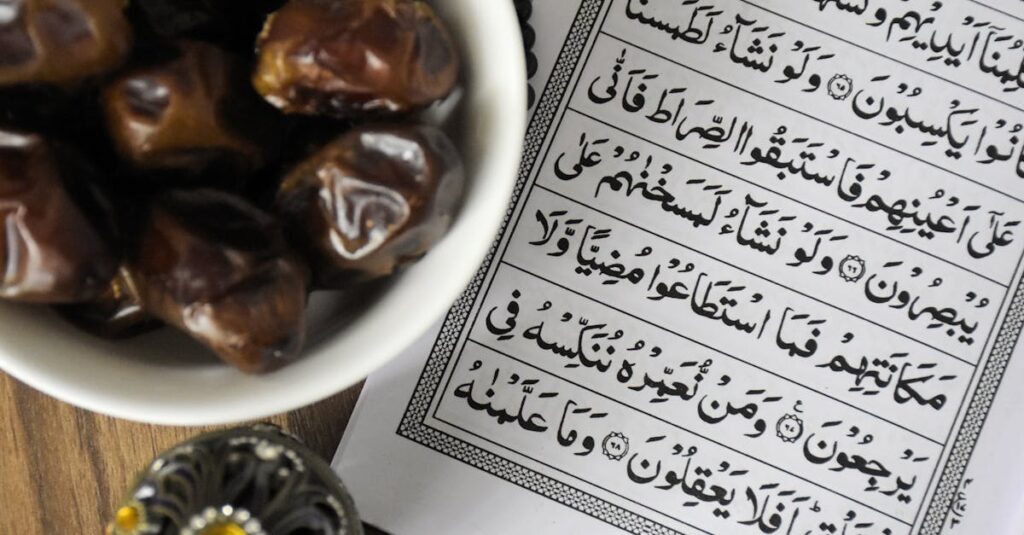 اَيْدِيْهِمْ
كَانُوْا يَكْسِبُوْنَ ۝٦٥ وَلَوْ نَشَآءُ لَطَمَسْنَا
عَلٰٓى اَعْيُنِهِمْ فَاسْتَبَقُوا الصِّرَاطَ فَاَنّٰى
يُبْصِرُوْنَ ۝٦٦ وَلَوْ نَشَآءُ لَمَسَخْنٰهُمْ عَلٰى
مَكَانَتِهِمْ فَمَا اسْتَطَاعُوْا مُضِيًّا وَّلَا
يَرْجِعُوْنَ ۝٦٧ وَمَنْ نُّعَمِّرْهُ نُنَكِّسْهُ فِي
اَفَلَا يَعْقِلُوْنَ ۝٦٨ وَمَا عَلَّمْنٰهُ